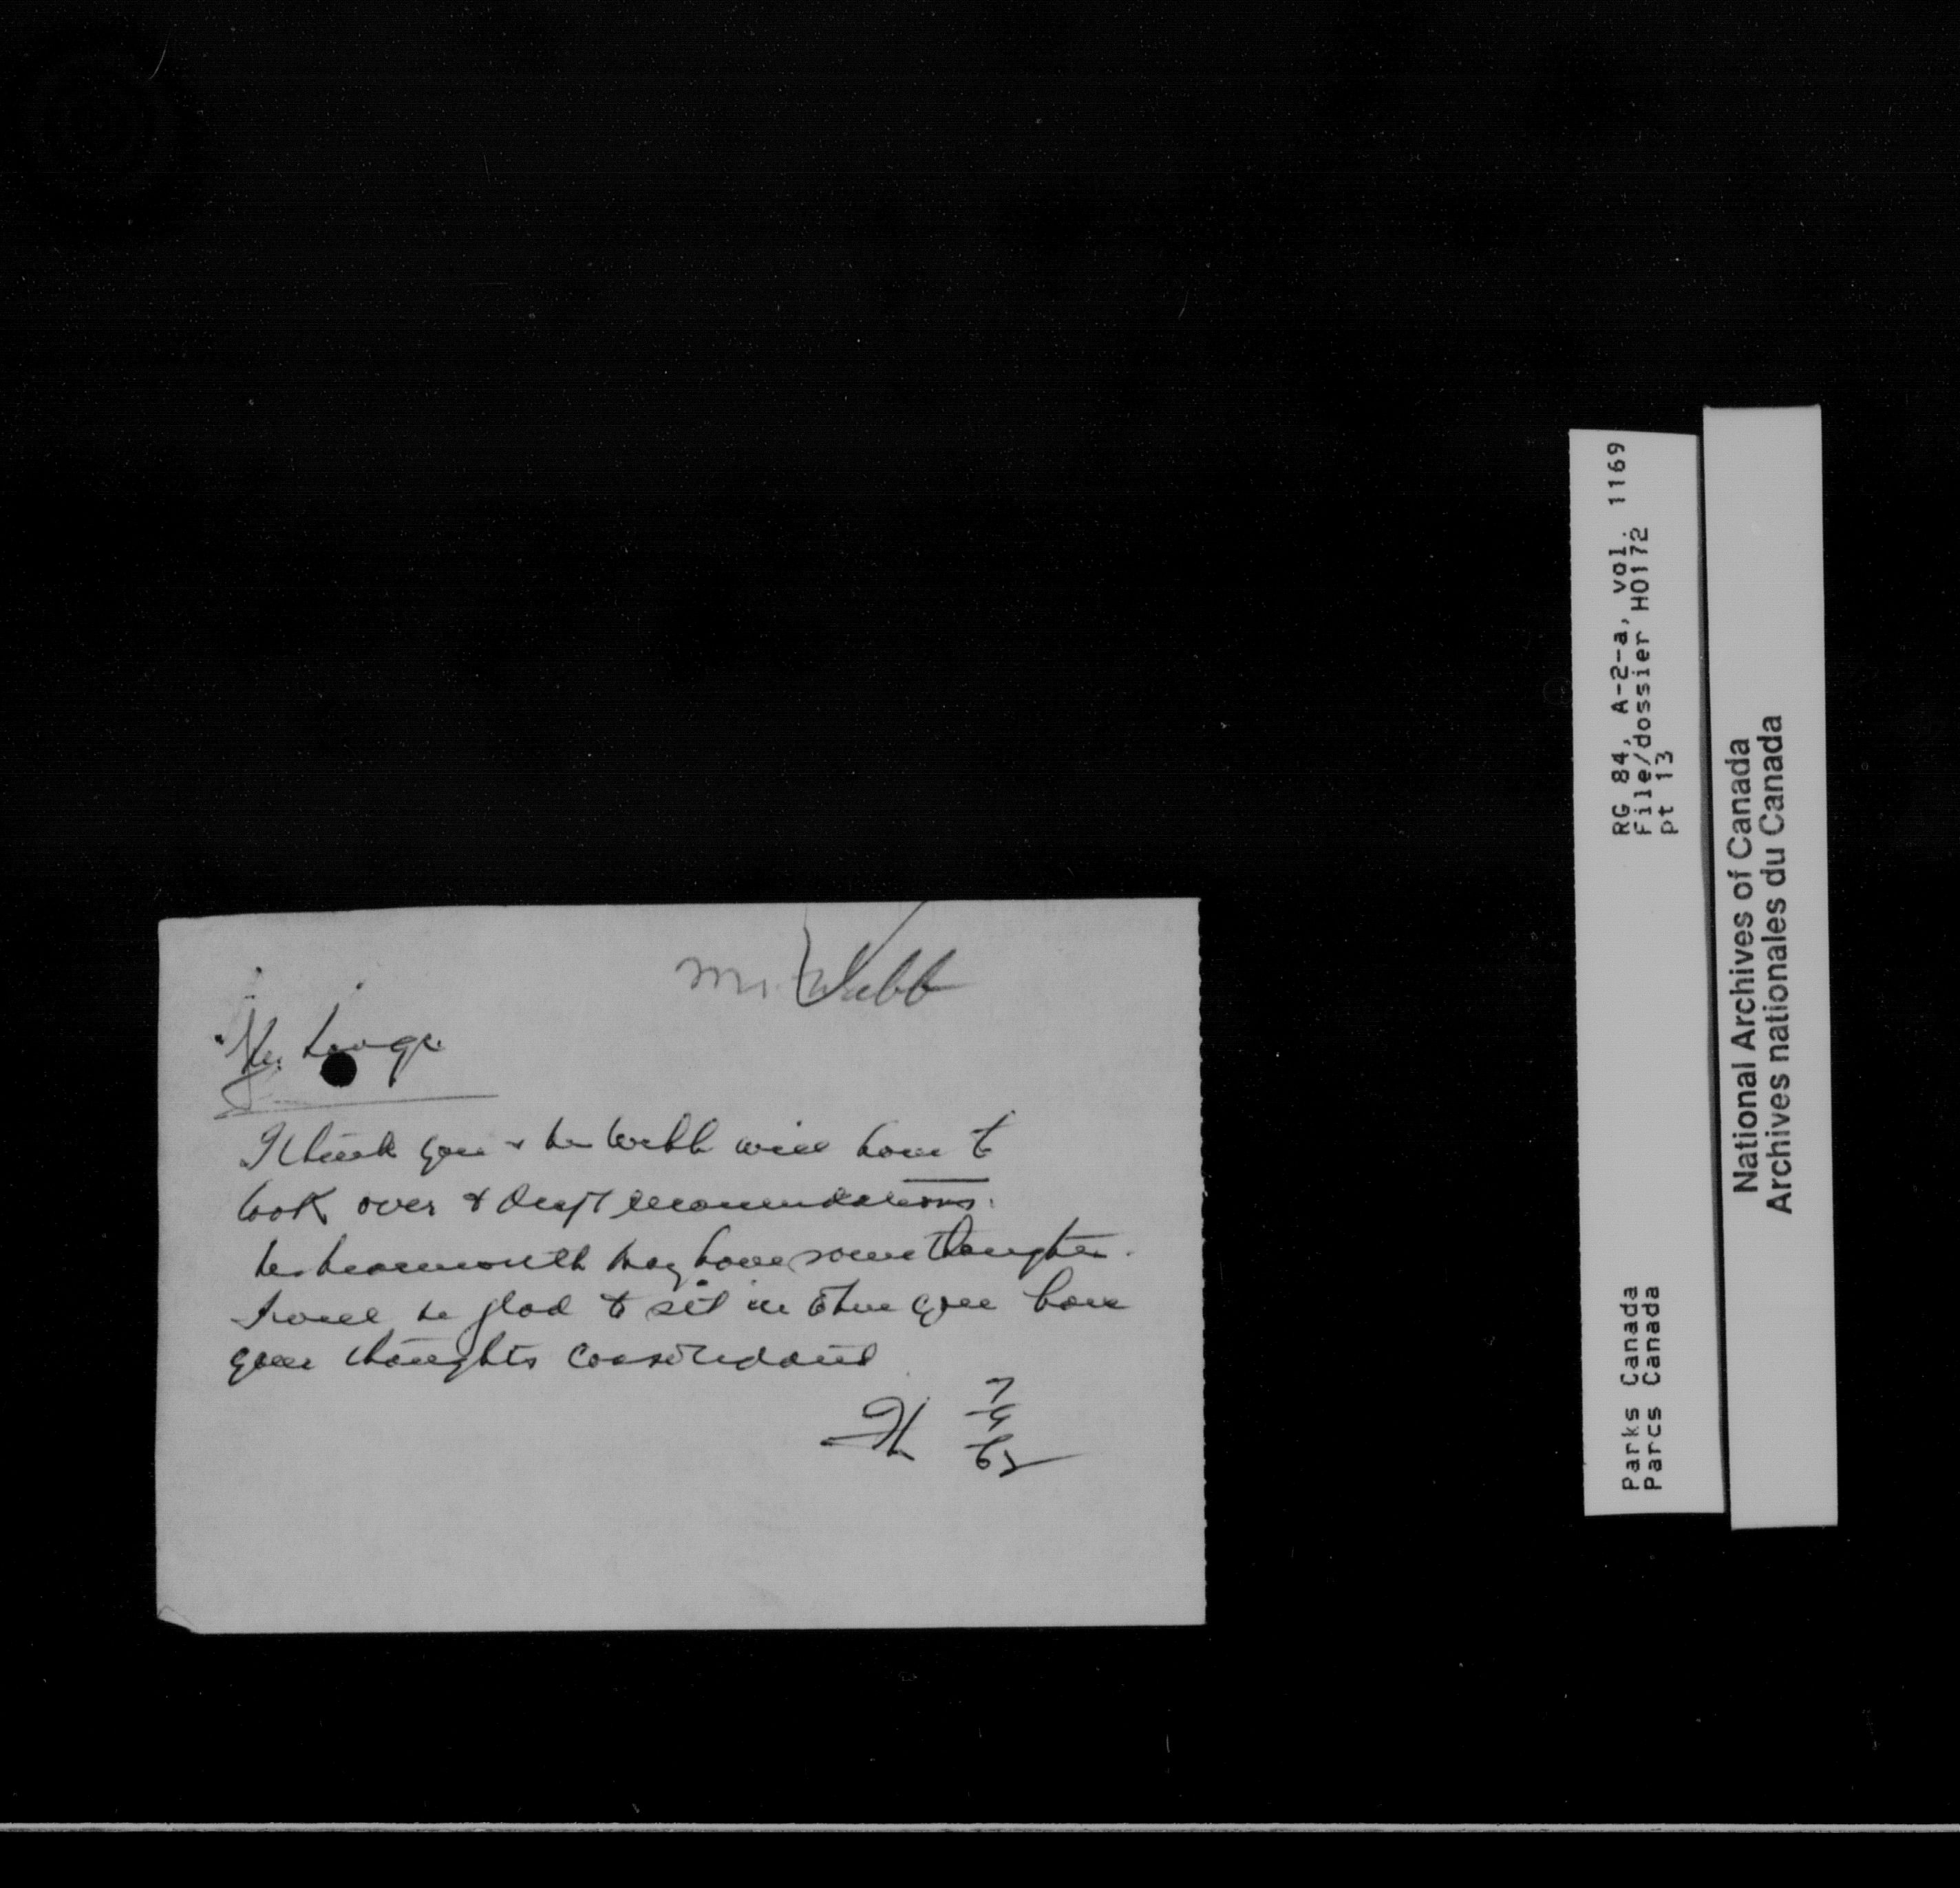 Mr. Webb
Mr.
I think you & Mr Webb will have to
look over & draft recommendations.
Mr may have some thoughts.
I will be glad to sit in when you have
your thoughts consolidated
7
9
62
RG 84, A-2-a, vol. 1169
File/dossier H0172
pt 13
Parks Canada
Parcs Canada
National Archives of Canada
Archives nationales du Canada